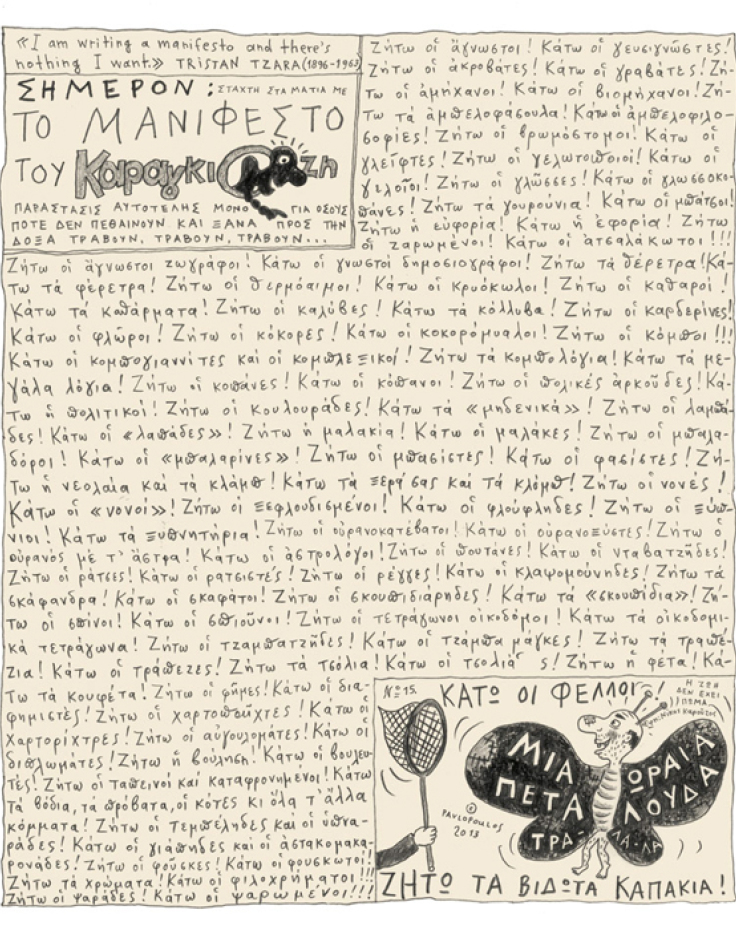 «I am writing a manifesto and there's
nothing I want.» TRISTAN TZARA (1896-1963)
ΣΗΜΕΡΟΝ: ΣΤΑΧΤΗ ΣΤΑ ΜΑΤΙΑ ΜΕ
ΤΟ ΜΑΝΙΦΕΣΤΟ
ΤΟΥ Καραγκιόζη
ΠΑΡΑΣΤΑΣΙΣ ΑΥΤΟΤΕΛΗΣ ΜΟΝΟ ΓΙΑ ΟΣΟΥΣ
ΠΟΤΕ ΔΕΝ ΠΕΘΑΙΝΟΥΝ ΚΑΙ ΞΑΝΑ ΠΡΟΣ ΤΗΝ
ΔΟΞΑ ΤΡΑΒΟΥΝ, ΤΡΑΒΟΥΝ, ΤΡΑΒΟΥΝ...
Ζήτω οἱ ἄγνωστοι! Κάτω οἱ γευσιγνῶστες!
Ζήτω οἱ ἀκροβάτες! Κάτω οἱ γραβάτες! Ζή-
τω οἱ ἀμήχανοι! Κάτω οἱ βιομήχανοι! Ζή-
τω τά ἀμπελοφάσουλα! Κάτω οἱ ἀμπελοφιλο-
σοφίες! Ζήτω οἱ βρωμόστομοι! Κάτω οἱ
γλείφτες! Ζήτω οἱ γελωτοποιοί! Κάτω οἱ
γελοῖοι! Ζήτω οἱ γλῶσσες! Κάτω οἱ γλωσσοκο-
πάνες! Ζήτω τά γουρούνια! Κάτω οἱ μπάτσοι!
Ζήτω ἡ εὐφορία! Κάτω ἡ ἐφορία! Ζήτω
οἱ ζαρωμένοι! Κάτω οἱ ἀτσαλάκωτοι!!!
Ζήτω οἱ ἄγνωστοι ζωγράφοι! Κάτω οἱ γνωστοί δημοσιογράφοι! Ζήτω τά θέρετρα! Κά-
τω τά φέρετρα! Ζήτω οἱ θερμόαιμοι! Κάτω οἱ κρυόκωλοι! Ζήτω οἱ καθαροί!
Κάτω τά καθάρματα! Ζήτω οἱ καλύβες! Κάτω τά κόλλυβα! Ζήτω οἱ καρδερίνες!
Κάτω οἱ φλῶροι! Ζήτω οἱ κόκορες! Κάτω οἱ κοκορόμυαλοι! Ζήτω οἱ κόμποι!!!
Κάτω οἱ κομπογιαννίτες καί οἱ κομπλεξικοί! Ζήτω τά κομπολόγια! Κάτω τά με-
γάλα λόγια! Ζήτω οἱ κοπάνες! Κάτω οἱ κόπανοι! Ζήτω οἱ πολικές ἀρκοῦδες! Κά-
τω ἡ πολιτικοί! Ζήτω οἱ κουλουράδες! Κάτω τά «μηδενικά»! Ζήτω οἱ λαμπά-
δες! Κάτω οἱ «λαπάδες»! Ζήτω ἡ μαλακία! Κάτω οἱ μαλάκες! Ζήτω οἱ μπαλα-
δόροι! Κάτω οἱ «μπαλαρίνες»! Ζήτω οἱ μπασίστες! Κάτω οἱ φασίστες! Ζή-
τω ἡ νεολαία καί τά κλάμπ! Κάτω τά ξερά σας καί τά κλόμπ! Ζήτω οἱ νονές!
Κάτω οἱ «νονοί»! Ζήτω οἱ ξεφλουδισμένοι! Κάτω οἱ φλούφληδες! Ζήτω οἱ ξύπ-
νιοι! Κάτω τά ξυπνητήρια! Ζήτω οἱ οὐρανοκατέβατοι! Κάτω οἱ οὐρανοξύστες! Ζήτω ὁ
οὐρανός μέ τ' ἄστρα! Κάτω οἱ ἀστρολόγοι! Ζήτω οἱ πουτάνες! Κάτω οἱ νταβατζῆδες!
Ζήτω οἱ ράτσες! Κάτω οἱ ρατσιστές! Ζήτω οἱ ρέγγες! Κάτω οἱ κλαψομούνηδες! Ζήτω τά
σκάφανδρα! Κάτω οἱ σκαφάτοι! Ζήτω οἱ σκουπιδιάρηδες! Κάτω τά «σκουπίδια»! Ζή-
τω οἱ σπίνοι! Κάτω οἱ σπιοῦνοι! Ζήτω οἱ τετράγωνοι οἰκοδόμοι! Κάτω τά οἰκοδομι-
κά τετράγωνα! Ζήτω οἱ τζαμπατζῆδες! Κάτω οἱ τζάμπα μάγκες! Ζήτω τά τραπέ-
ζια! Κάτω οἱ τράπεζες! Ζήτω τά τσόλια! Κάτω οἱ τσολιάδες! Ζήτω ἡ φέτα! Κά-
τω τά κουφέτα! Ζήτω οἱ φῆμες! Κάτω οἱ δια-
φημιστές! Ζήτω οἱ χαρτοπαῖχτες! Κάτω οἱ
χαρτορίχτρες! Ζήτω οἱ αὐγουλομάτες! Κάτω οἱ
διπλωμάτες! Ζήτω ἡ βούληση! Κάτω οἱ βουλευ-
τές! Ζήτω οἱ ταπεινοί καί καταφρονημένοι! Κάτω
τά βόδια, τά πρόβατα, οἱ κότες κι ὅλα τ' ἄλλα
κόμματα! Ζήτω οἱ τεμπέληδες καί οἱ ὑπνα-
ράδες! Κάτω οἱ γιάπηδες καί οἱ ἀστακομακα-
ρονάδες! Ζήτω οἱ φοῦσκες! Κάτω οἱ φουσκωτοί!
Ζήτω τά χρώματα! Κάτω οἱ φιλοχρήματοι!!!
Ζήτω οἱ ψαράδες! Κάτω οἱ ψαρωμένοι!!!
Νο 15.
ΚΑΤΩ ΟΙ ΦΕΛΛΟΙ!
Η ΖΩΗ
ΔΕΝ ΕΧΕΙ
ΠΩΜΑ
ΜΙΑ ΩΡΑΙΑ
ΠΕΤΑΛΟΥΔΑ
ΤΡΑ-ΛΑ-ΛΑ
© PAVLOPOULOS
2013
ΖΗΤΩ ΤΑ ΒΙΔΩΤΑ ΚΑΠΑΚΙΑ!